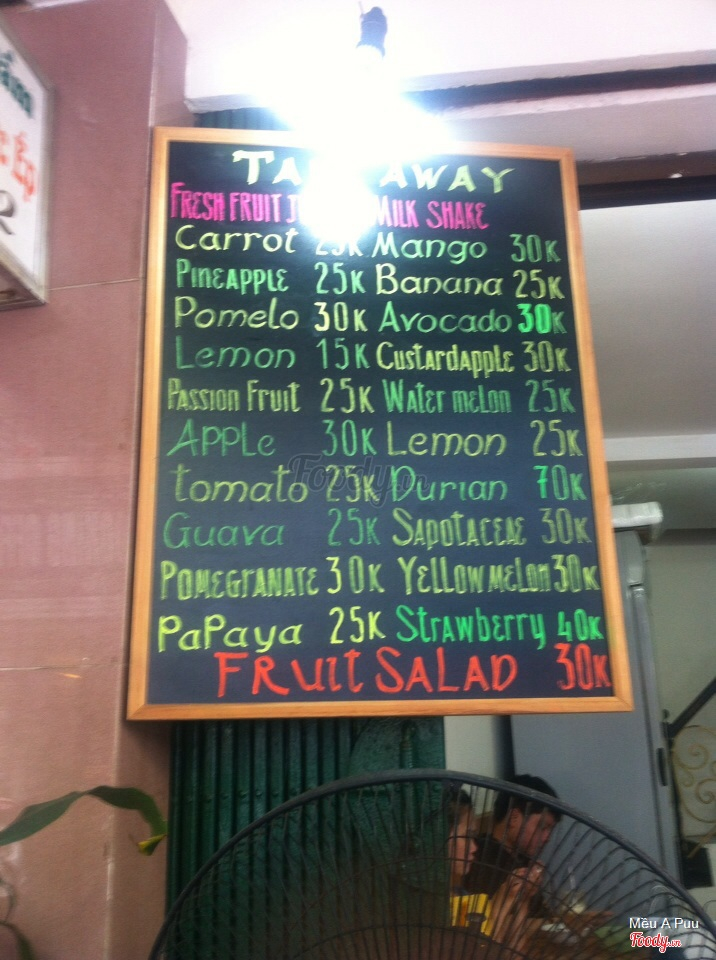 AWAY
FRESH FRUIT MILK SHAKE
Carrot 25K Mango 30K
PINEAPPLE 25K Banana 25K
Pomelo 30K Avocado 30K
Lemon 15K CUSTARDAPPLE 30K
PASSION FRUIT 25K WATER MELON 25K
APPLe 30K Lemon 25K
tomato 25K Durian 70K
Guava 25K SAPOTACEAE 30K
POMEGRANATE 30K YELLOW MELON 30K
PaPaya 25K STRAWBERRY 40K
FRUIT SALAD 30K
Foody.vn
Mều A Puu
Foody.vn